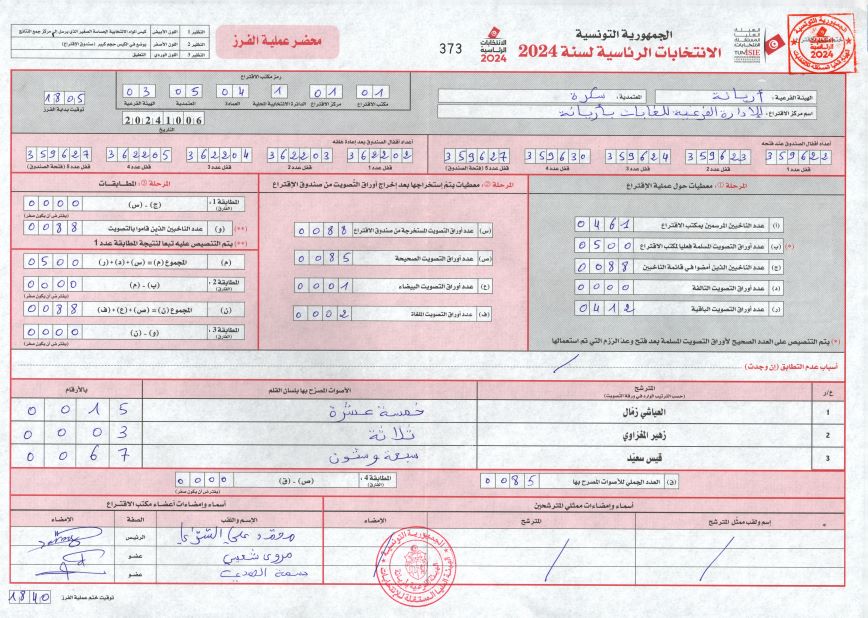 الجمهورية التونسية
الانتخابات الرئاسية لسنة 2024
373
الانتخابات الرئاسية 2024
محضر عملية الفرز
النظير 1 اللون الأبيض
النظير 2 اللون الأصفر
النظير 3 اللون الوردي التعليق
الهيئة الفرعية : أريانة
المعتمدية : سكرة
اسم مركز الإقتراع : الإدارة الفرعية للغابات بأريانة
رمز مكتب الاقتراع
01 01 1 04 05 03
مكتب الاقتراع مركز الإقتراع الدائرة الانتخابية المحلية العمادة المعتمدية الهيئة الفرعية
1805
توقيت بداية الفرز
20241006
التاريخ
أعداد أقفال الصندوق عند فتحه
359622 359623 359624 359630 359627
قفل عدد 1 قفل عدد 2 قفل عدد 3 قفل عدد 4 قفل عدد 5 (فتحة الصندوق)
أعداد أقفال الصندوق بعد إعادة غلقه
362202 362203 362204 362205 359627
قفل عدد 1 قفل عدد 2 قفل عدد 3 قفل عدد 4 قفل عدد 5 (فتحة الصندوق)
المرحلة 1: معطيات حول عملية الإقتراع
(أ) عدد الناخبين المرسمين بمكتب الاقتراع 0461
(*) (ب) عدد أوراق التصويت المسلمة فعليا لمكتب الاقتراع 0500
(ج) عدد الناخبين الذين أمضوا في قائمة الناخبين 0088
(د) عدد أوراق التصويت التالفة 0000
(ر) عدد أوراق التصويت الباقية 0412
(*) يتم التنصيص على العدد الصحيح لأوراق التصويت المسلمة بعد فتح وعد الرزم التي تم استعمالها
المرحلة 2: معطيات يتم إستخراجها بعد إخراج أوراق التصويت من صندوق الإقتراع
(س) عدد أوراق التصويت المستخرجة من صندوق الاقتراع 0088
(ص) عدد أوراق التصويت الصحيحة 0085
(ع) عدد أوراق التصويت البيضاء 0001
(ف) عدد أوراق التصويت الملغاة 0002
المرحلة 3: المطابقات
المطابقة 1: (الفارق) (ج) - (س) 0000
(يفترض أن يكون صفر)
(**) (و) عدد الناخبين الذين قاموا بالتصويت 0088
(**) يتم التنصيص عليه تبعا لنتيجة المطابقة عدد 1
(م) المجموع (م) = (س) + (د) + (ر) 0500
المطابقة 2: (الفارق) (ب) - (م) 0000
(يفترض أن يكون صفر)
(ن) المجموع (ن) = (ص) + (ع) + (ف) 0088
المطابقة 3: (الفارق) (و) - (ن) 0000
(يفترض أن يكون صفر)
أسباب عدم التطابق (إن وجدت) /
ع/ر المترشح الأصوات المصرح بها بلسان القلم بالأرقام
(حسب الترتيب الوارد في ورقة التصويت)
1 العياشي زمّال خمسة عشرة 0015
2 زهير المغزاوي ثلاثة 0003
3 قيس سعيّد سبعة وستون 0067
(ق) العدد الجملي للأصوات المصرح بها 0085
المطابقة 4: (الفارق) (ص) - (ق) 0000
(يفترض أن يكون صفر)
أسماء وإمضاءات ممثلي المترشحين
إسم ولقب ممثل المترشح المترشح الإمضاء
أسماء وإمضاءات أعضاء مكتب الاقتراع
الإسم واللقب الصفة الإمضاء
الرئيس
مروى شعبي عضو
عضو
توقيت ختم عملية الفرز 1840